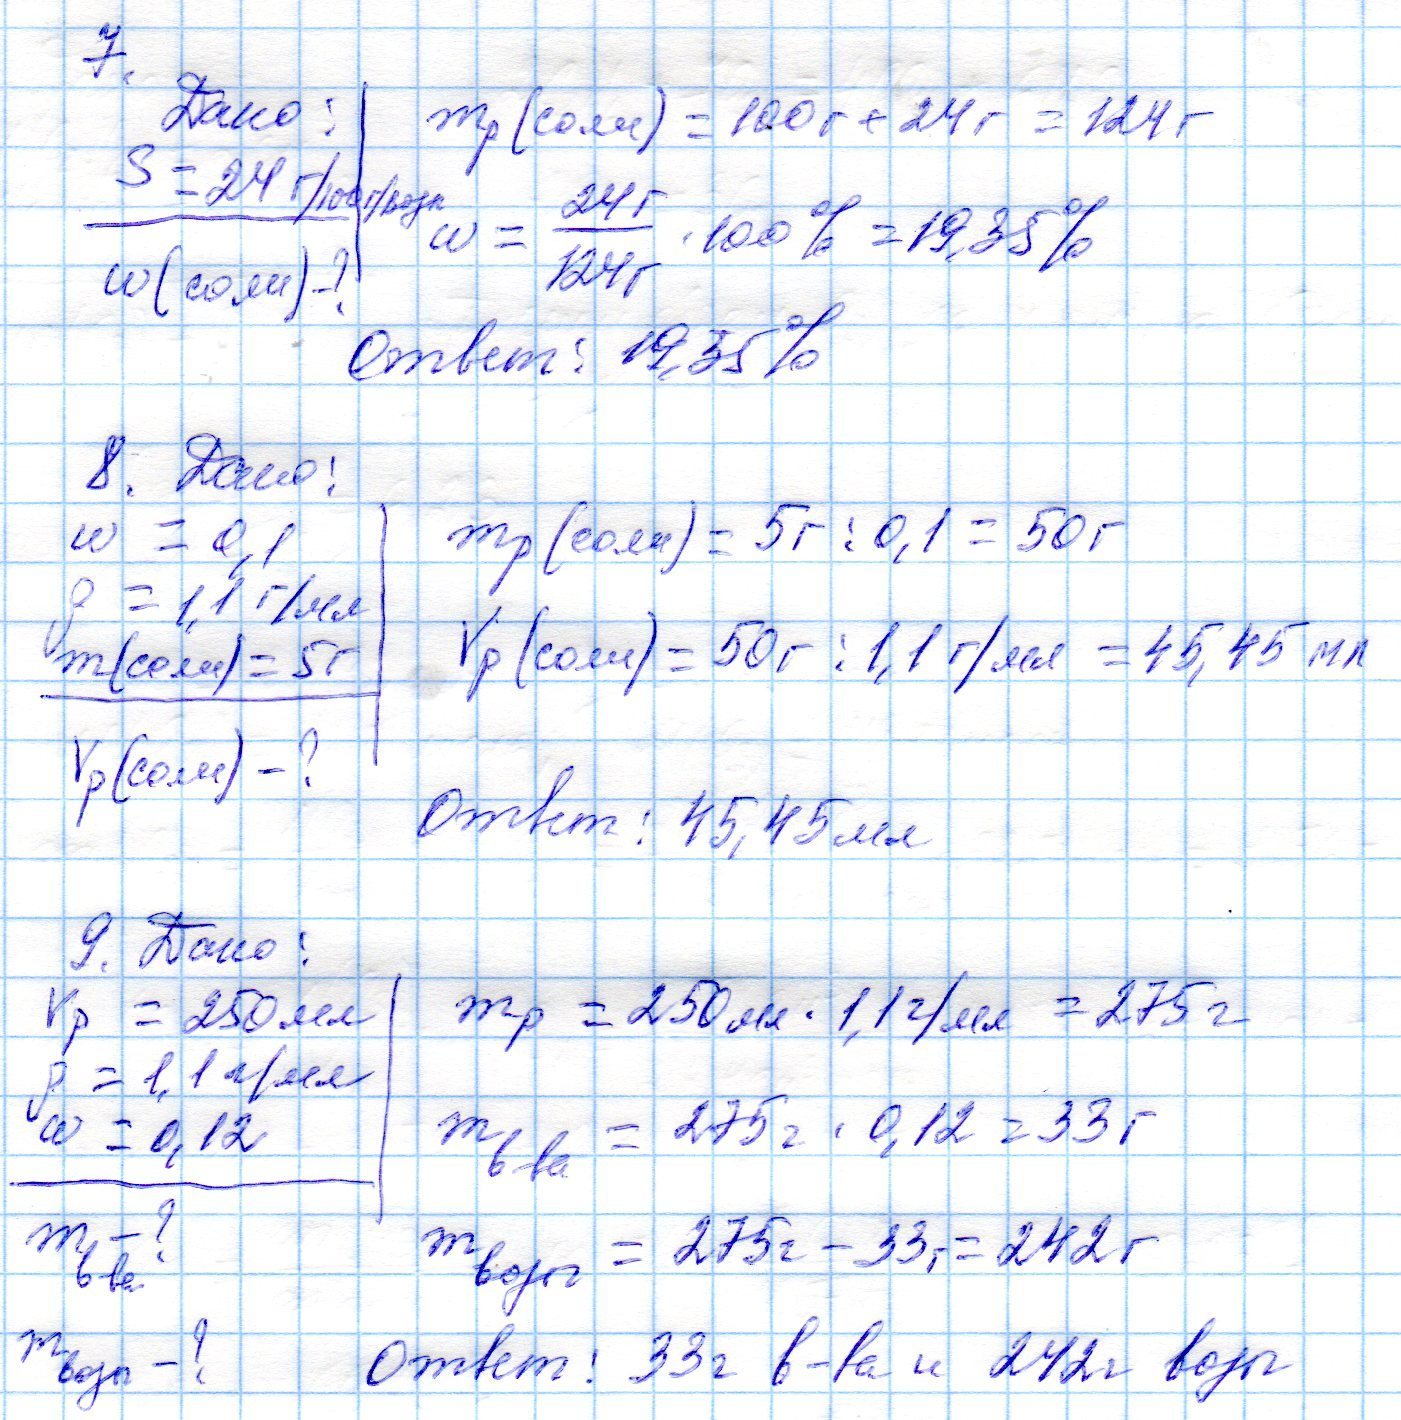 7.
Дано:
S = 24 г/100 г/воды
w(соли) - ?
mр(соли) = 100 г + 24 г = 124 г
w = 24 г / 124 г · 100 % = 19,35 %
Ответ: 19,35 %
8. Дано:
w = 0,1
ρ = 1,1 г/мл
m(соли) = 5 г
Vр(соли) - ?
mр(соли) = 5 г : 0,1 = 50 г
Vр(соли) = 50 г : 1,1 г/мл = 45,45 мл
Ответ: 45,45 мл
9. Дано:
Vр = 250 мл
ρ = 1,1 г/мл
w = 0,12
mв-ва - ?
mводы - ?
mр = 250 мл · 1,1 г/мл = 275 г
mв-ва = 275 г · 0,12 = 33 г
mводы = 275 г - 33 г = 242 г
Ответ: 33 г в-ва и 242 г воды